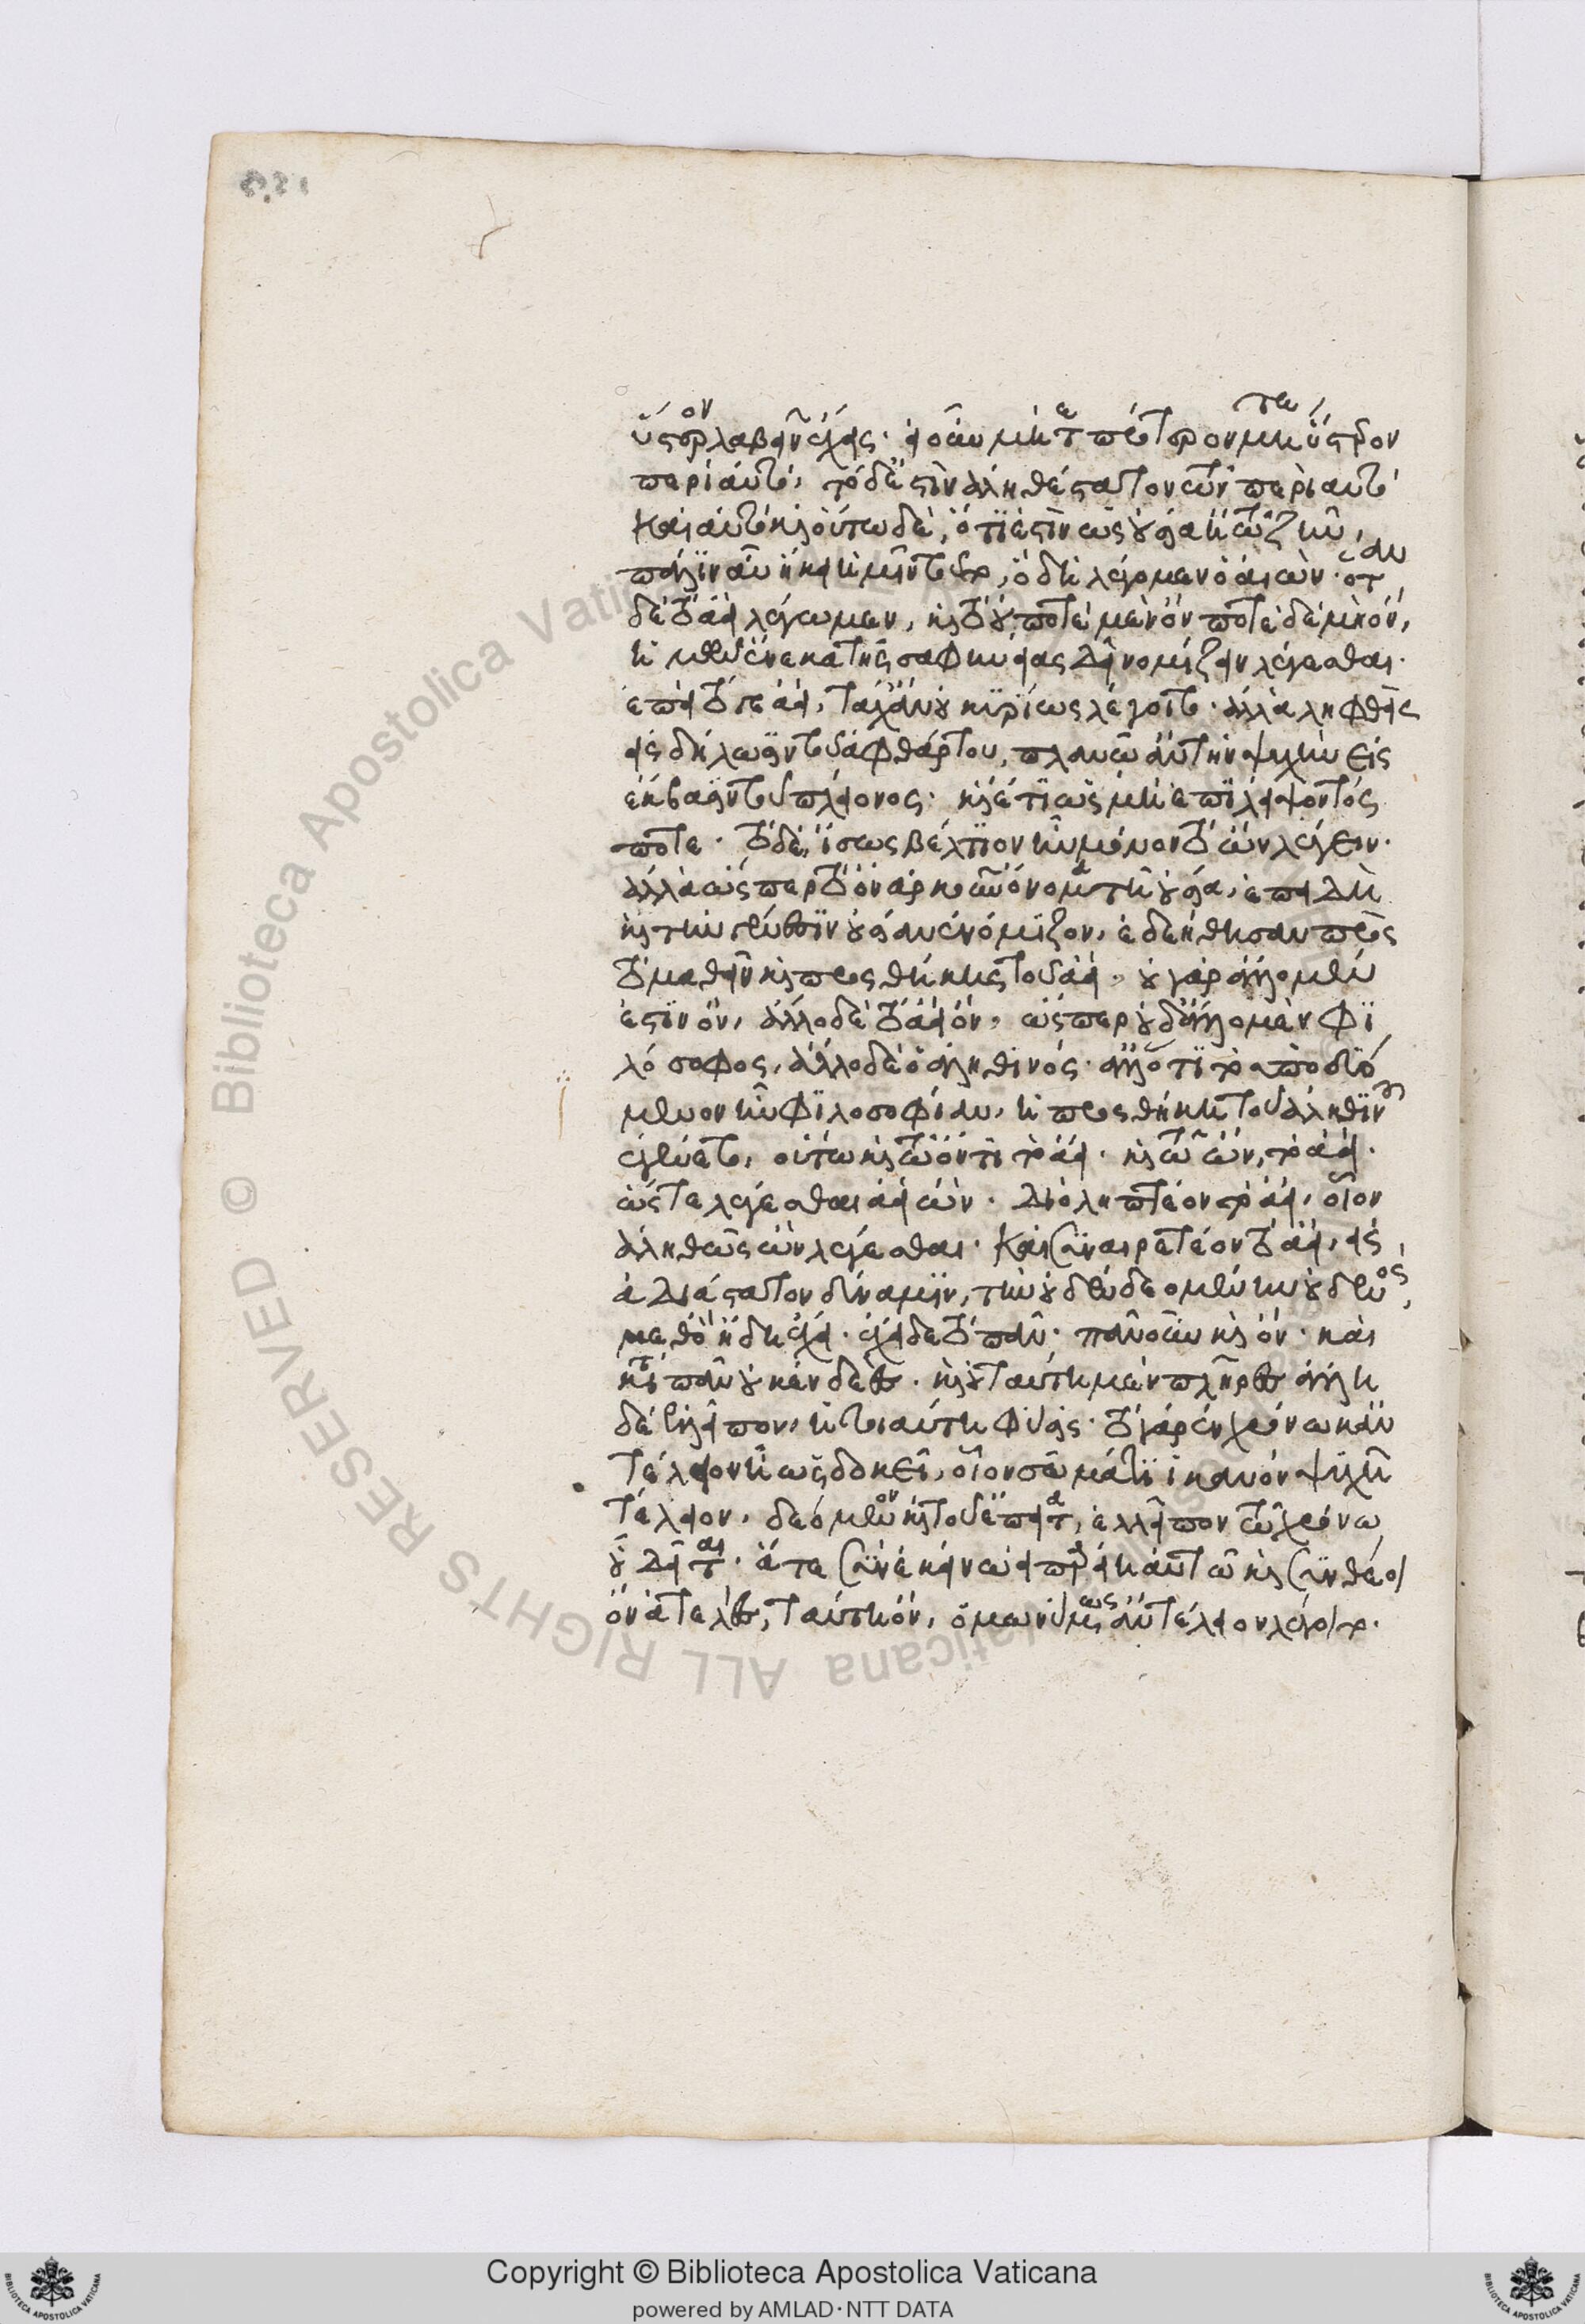 ὕστερον λαβεῖν ἔχεις. εἰ οὖν μήτε πρότερον μήτε ὕστερον
περὶ αὐτό, τὸ δ' ἔστιν ἀληθέστατον τῶν περὶ αὐτὸ
καὶ αὐτὸ καὶ οὕτω δέ, ὅτι ἐστὶν ὡς οὐσία ἢ τῷ ζῆν,
πάλιν αὖ ἥκει ἡμῖν τοῦτο, ὃ δὴ λέγομεν ὁ αἰών. ὅταν
δὲ τὸ ἀεὶ λέγωμεν, καὶ τὸ οὐ ποτὲ μὲν ὂν ποτὲ δὲ μὴ ὄν,
ἡμῶν ἕνεκα τῆς σαφηνείας δεῖ νομίζειν λέγεσθαι.
ἐπεὶ τό γε ἀεί, τάχ' ἂν οὐ κυρίως λέγοιτο. ἀλλὰ ληφθὲν
εἰς δήλωσιν τοῦ ἀφθάρτου, πλανῷ ἂν τὴν ψυχὴν εἰς
ἔκβασιν τοῦ πλείονος. καὶ ἔτι ὡς μὴ ἐπιλείψοντός
ποτε. τὸ δὲ, ἴσως βέλτιον ἦν μόνον τὸ ὢν λέγειν.
ἀλλὰ ὥσπερ τὸ ὂν ἀρκοῦν ὄνομα τῇ οὐσία, ἐπειδὴ
καὶ τὴν γένεσιν οὐσίαν ἐνόμιζον, ἐδεήθησαν πρὸς
τὸ μαθεῖν καὶ προσθήκης τοῦ ἀεί. οὐ γὰρ ἄλλο μέν
ἐστιν ὄν, ἄλλο δὲ τὸ ἀεὶ ὄν, ὥσπερ οὐδ' ἄλλο μὲν φι
λόσοφος, ἄλλο δὲ ὁ ἀληθινός. ἀλλ' ὅτι τὸ ὑποδυό
μενον ἦν φιλοσοφίαν, ἡ προσθήκη τοῦ ἀληθινοῦ
ἐγένετο, οὕτω καὶ τῷ ὄντι τὸ ἀεί. καὶ τῷ ὤν, τὸ ἀεί.
ὥστε λέγεσθαι ἀεὶ ὤν. διὸ ληπτέον τὸ ἀεί, οἷον
ἀληθῶς ὢν λέγεσθαι. καὶ συναιρετέον τὸ ἀεί, εἰς
ἀδιάστατον δύναμιν, τὴν οὐδὲν δεομένην οὐδενός,
μεθ' ὃ ἤδη ἔχει. ἔχει δὲ τὸ πᾶν. πᾶν οὖν καὶ ὄν. καὶ
κατὰ τὸ πᾶν οὐκ ἐνδεές. καὶ οὐ ταύτη μὲν πλῆρες ἄλλη
δὲ ἐλλεῖπον, ἡ τοιαύτη φύσις. τὸ γὰρ ἐν χρόνω κἂν
τέλειον ᾖ ὡς δοκεῖ, οἷον σῶμά τι ἱκανὸν ψυχῇ
τέλειον, δεόμενον καὶ τοῦ ἔπειτα, ἐλλεῖπον τῷ χρόνω
οὗ δεῖται. ἅτε σὺν ἐκείνω εἰ παρείη αὐτῷ καὶ συνθέοι
ὂν ἀτελές, ταύτη ὄν, ὁμωνύμως ἂν τέλειον λέγοιτο.
Copyright © Biblioteca Apostolica Vaticana
powered by AMLAD·NTT DATA